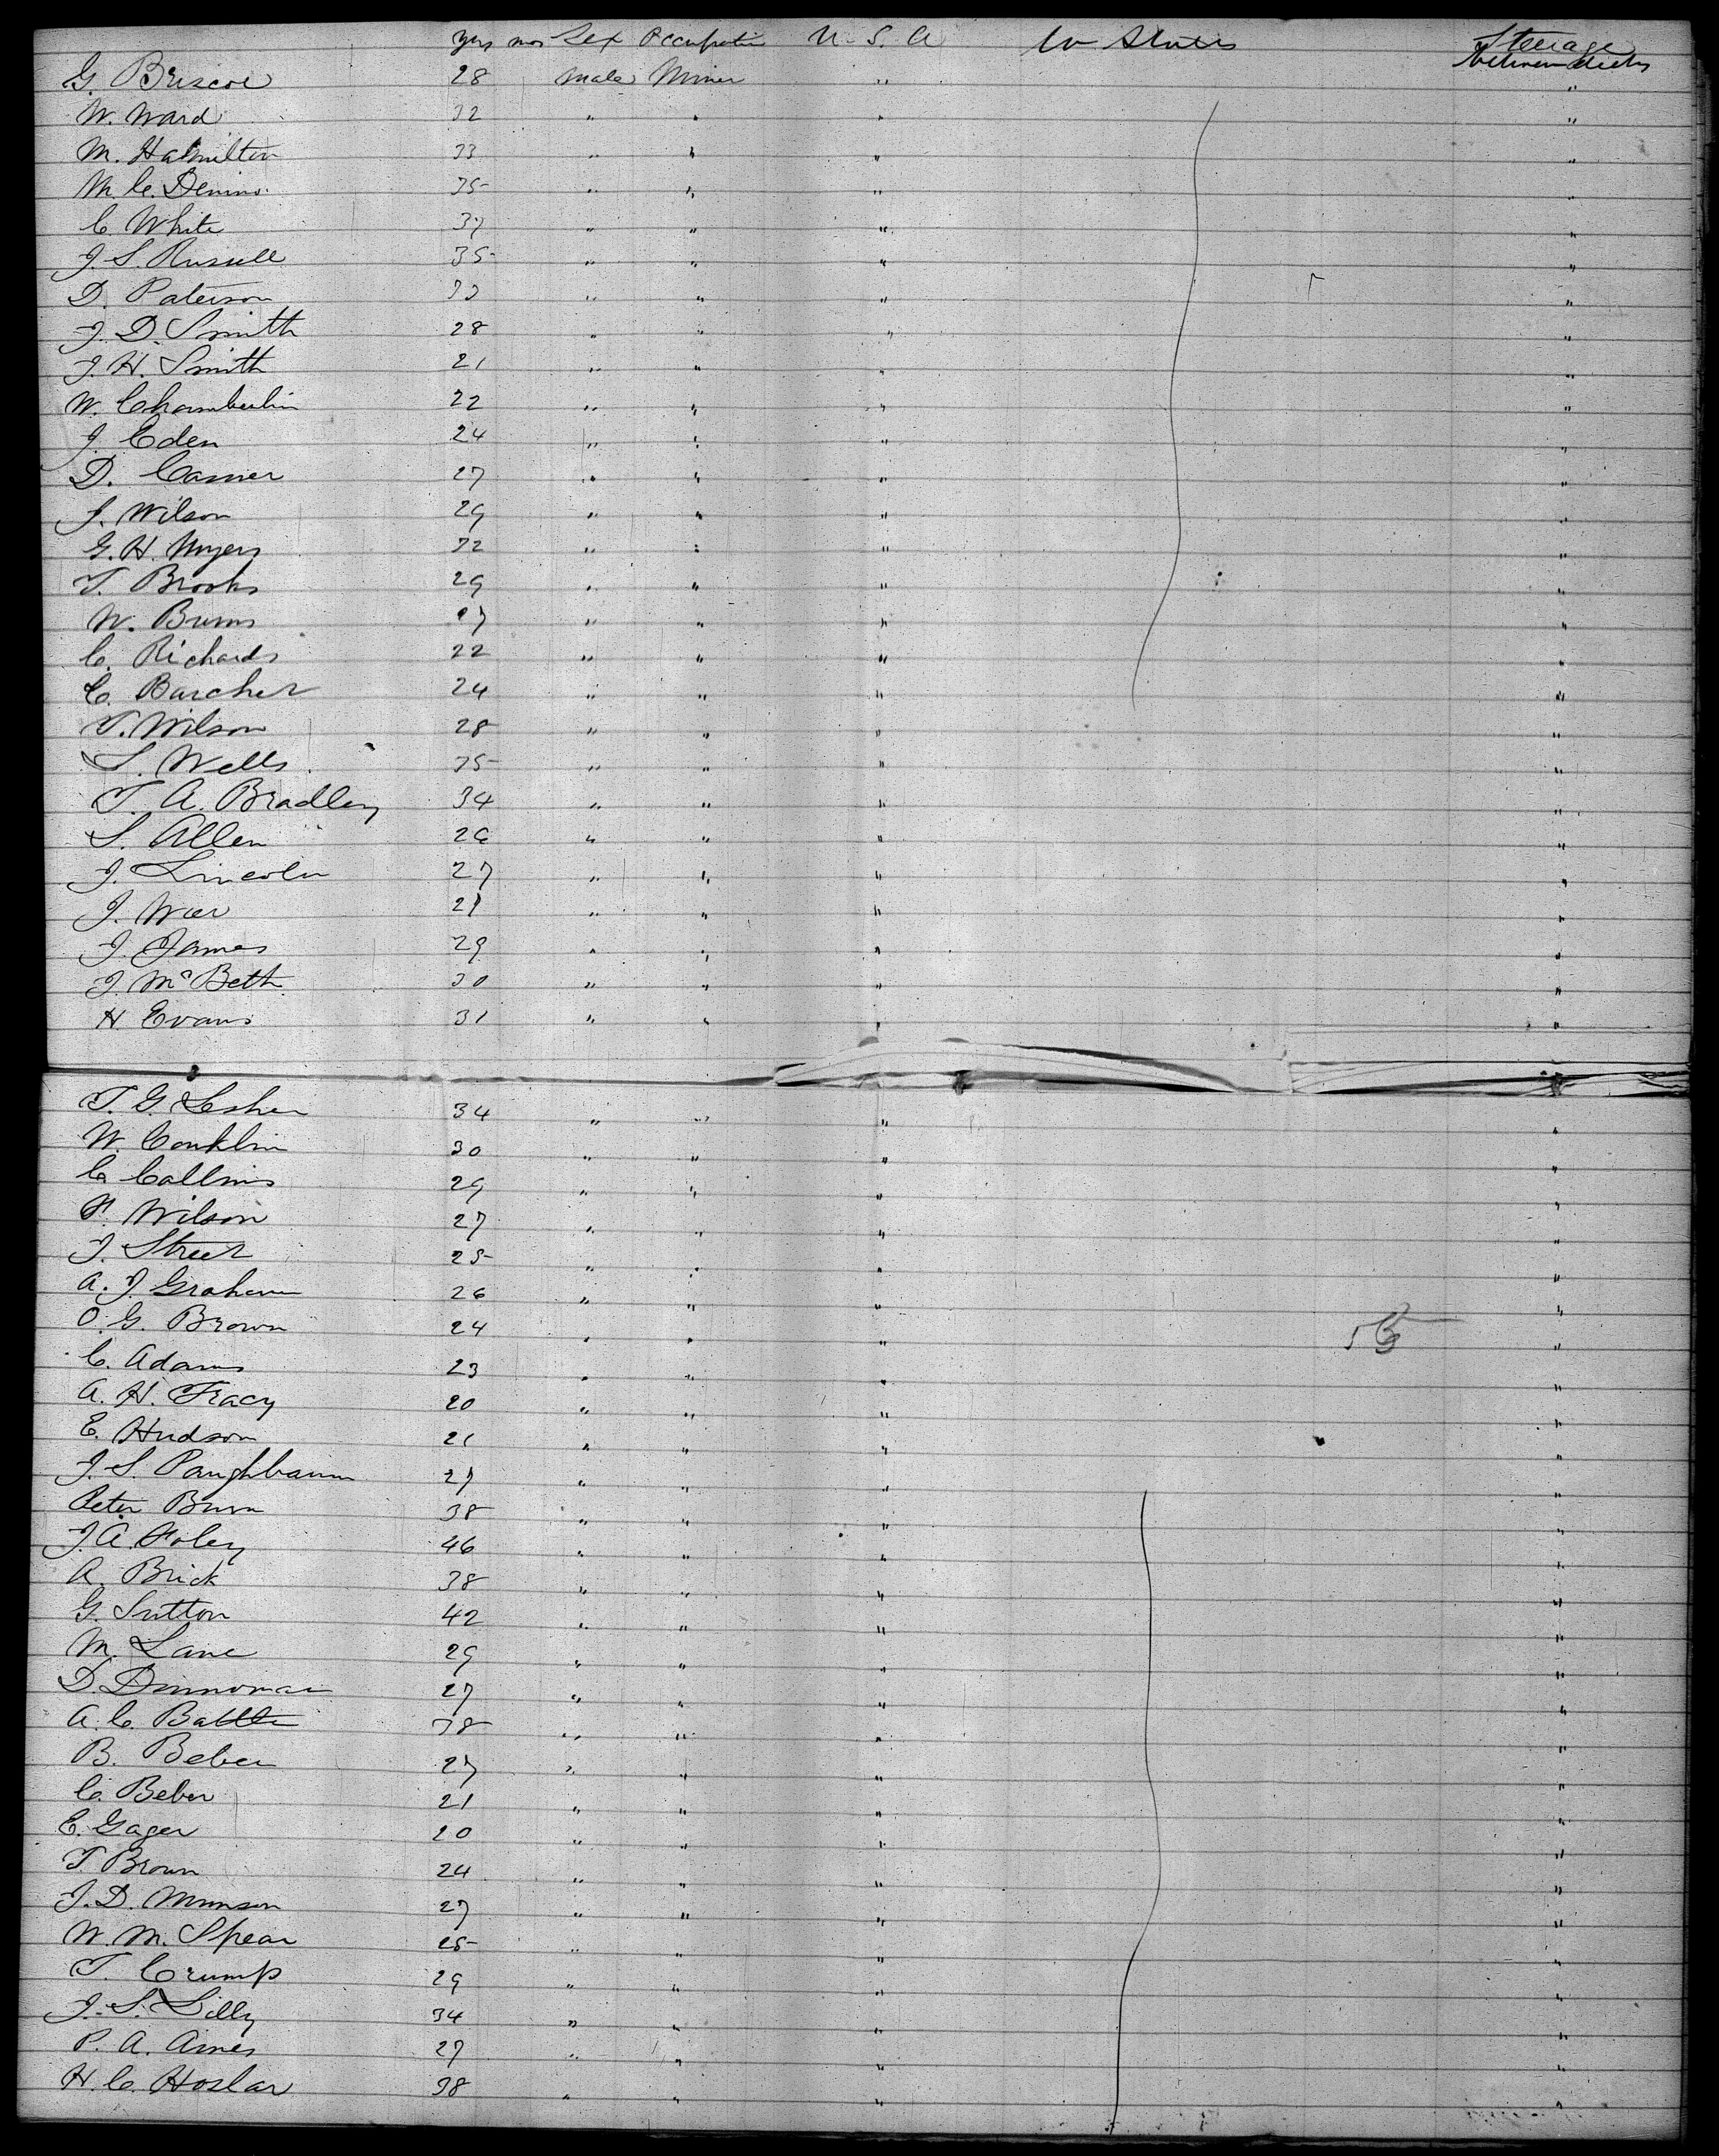 yrs mos Sex Occupation U. S. A U States Steerage
between decks
G. Briscoe 28 male Miner " "
W. Ward 32 " " " "
M. Hamilton 33 " " " "
M. C. Denims 35 " " " "
C. White 37 " " " "
J. S. Russell 35 " " " "
D. Paterson 33 " " " "
J. D. Smith 28 " " " "
J. H. Smith 21 " " " "
W. Chamberlin 22 " " " "
J. Eden 24 " " " "
D. Casner 27 " " " "
J. Wilson 29 " " " "
G. H. Myers 32 " " " "
T. Brooks 29 " " " "
W. Burns 27 " " " "
C. Richards 22 " " " "
C. Barcher 24 " " " "
T. Wilson 28 " " " "
S. Wells 35 " " " "
T. A. Bradley 34 " " " "
S. Allen 26 " " " "
J. Lincoln 27 " " " "
J. Wier 21 " " " "
J. James 29 " " " "
J. McBeth 30 " " " "
H. Evans 31 " " " "
T. G. Lesher 34 " " " "
W. Conklin 30 " " " "
C. Collins 29 " " " "
F. Wilson 27 " " " "
J. Street 25 " " " "
A. J. Graham 26 " " " "
O. G. Brown 24 " " " "
C. Adams 23 " " " "
A. H. Tracy 20 " " " "
E. Hudson 21 " " " "
J. S. Paughbaum 27 " " " "
Peter Brown 38 " " " "
J. A. Foley 46 " " " "
A. Brick 38 " " " "
G. Sutton 42 " " " "
M. Lane 29 " " " "
D. Dinnoman 27 " " " "
A. C. Battle 38 " " " "
B. Beber 27 " " " "
C. Beber 21 " " " "
E. Gager 20 " " " "
T. Brown 24 " " " "
J. D. Munson 27 " " " "
W. M. Spear 25 " " " "
T. Crump 29 " " " "
J. S. Lilly 34 " " " "
P. A. Ames 27 " " " "
H. C. Hoslar 38 " " " "